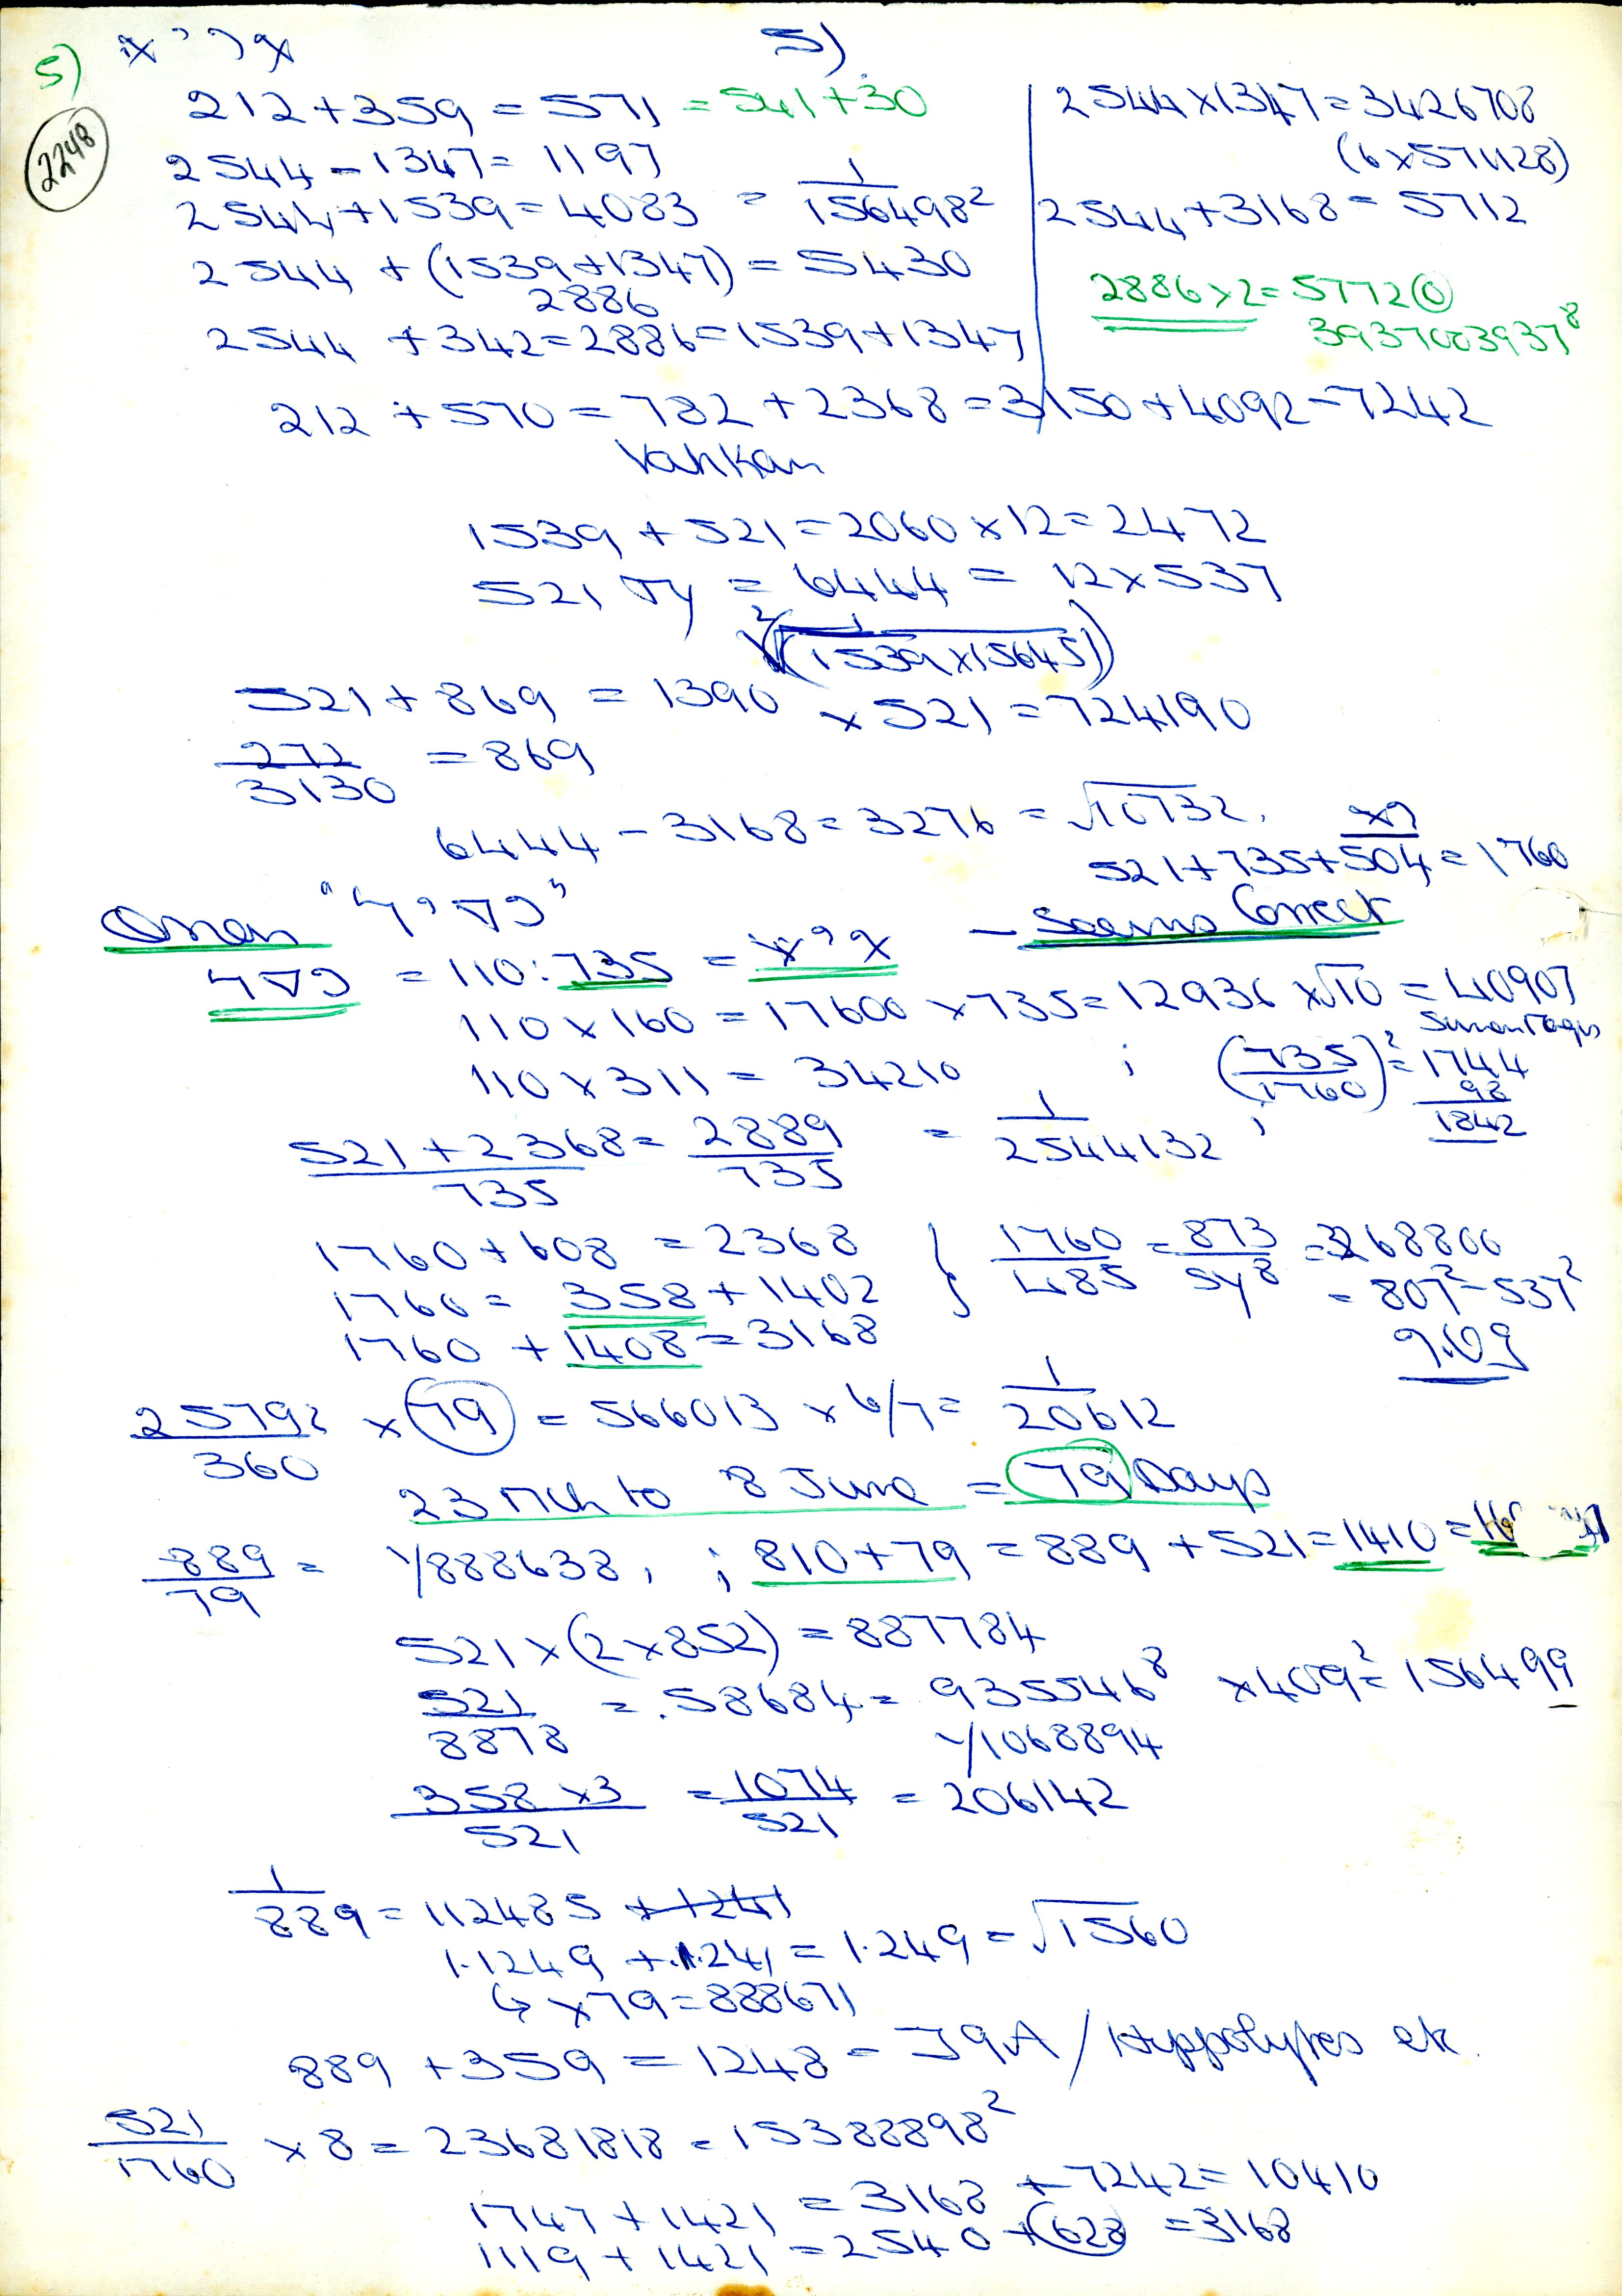 5)
5)
2248
212 + 359 = 571 = 541 + 30
2544 - 1347 = 1197
2544 + 1539 = 4083 = 1/156498²
2544 + (1539 + 1347) = 5430
2886
2544 + 342 = 2886 = 1539 + 1347
2544 × 1347 = 3426708
(6 × 571128)
2544 + 3168 = 5712
2886 × 2 = 5772(0)
3937003937⁸
212 + 570 = 782 + 2368 = 3150 + 4092 = 7242
1539 + 521 = 2060 × 12 = 2472
521 = 6444 = 12 × 537
(1539 × 15645)
521 + 869 = 1390 × 521 = 724190
272/3130 = 869
6444 - 3168 = 3276 = √10732.
521 + 735 + 504 = 1760
Omen — Seems Correct
= 110 : 735 =
110 × 160 = 17600 × 735 = 12936 × √10 = 40907
110 × 311 = 34210 ; (735/1760)² = 1744
98
1842
521 + 2368/735 = 2889/735 = 1/2544132 ;
1760 + 608 = 2368
1760 = 358 + 1402
1760 + 1408 = 3168
} 1760/485 = 873/54⁸ = 3268800
= 807² - 537²
9.09
25792/360 × 79 = 566013 × 6/7 = 1/20612
23 Mch to 8 June = 79 Days
889/79 = 1/888638, ; 810 + 79 = 889 + 521 = 1410 =
521 × (2 × 852) = 887784
521/8878 = .58684 = 935546⁸ × 409² = 156499
1/1068894
358 × 3/521 = 1074/521 = 206142
1/889 = 112485 + 1241
1.1249 + .1241 = 1.249 = √1560
↳ × 79 = 888671
889 + 359 = 1248 = / Hippolytes etc.
521/1760 × 8 = 23681818 = 15388898²
1747 + 1421 = 3168 + 7242 = 10410
1119 + 1421 = 2540 + 628 = 3168